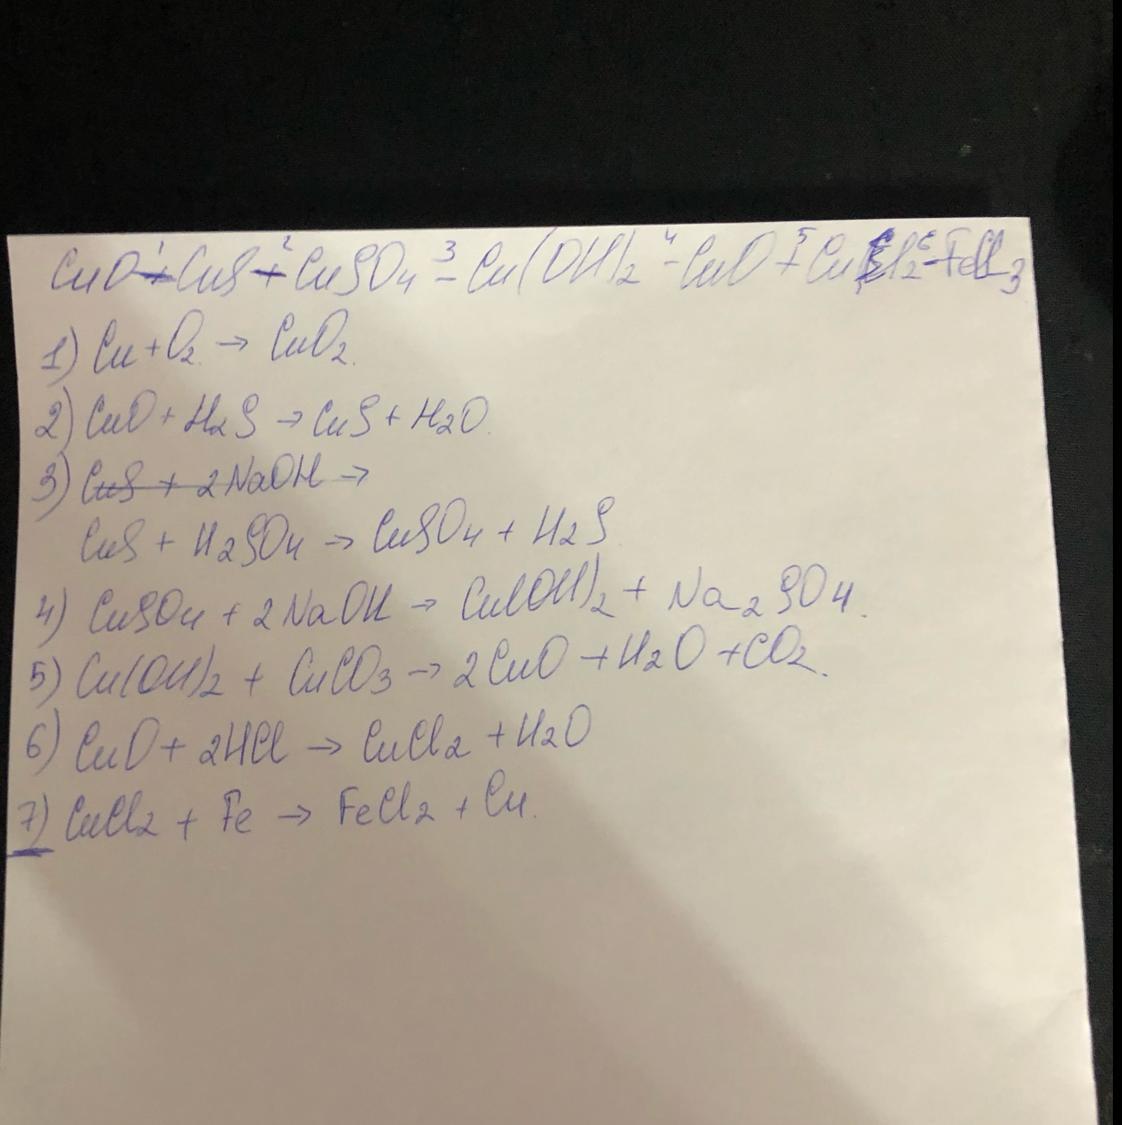 CuO - CuS + CuSO4 - Cu(OH)2 - CuO + CuCl2 - FeCl3
1) Cu + O2 → CuO2.
2) CuO + H2S → CuS + H2O.
3) CuS + 2NaOH →
CuS + H2SO4 → CuSO4 + H2S
4) CuSO4 + 2NaOH → Cu(OH)2 + Na2SO4.
5) Cu(OH)2 + CuCO3 → 2CuO + H2O + CO2.
6) CuO + 2HCl → CuCl2 + H2O
7) CuCl2 + Fe → FeCl2 + Cu.